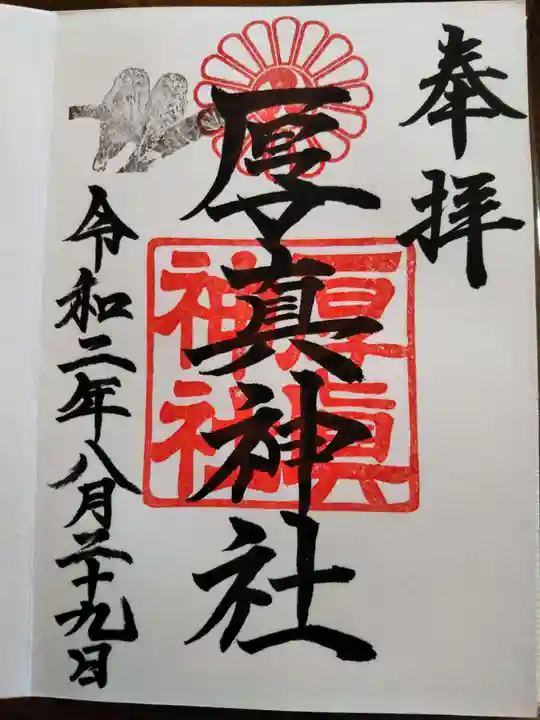 奉拝
厚真神社
厚眞神社
令和二年八月二十九日